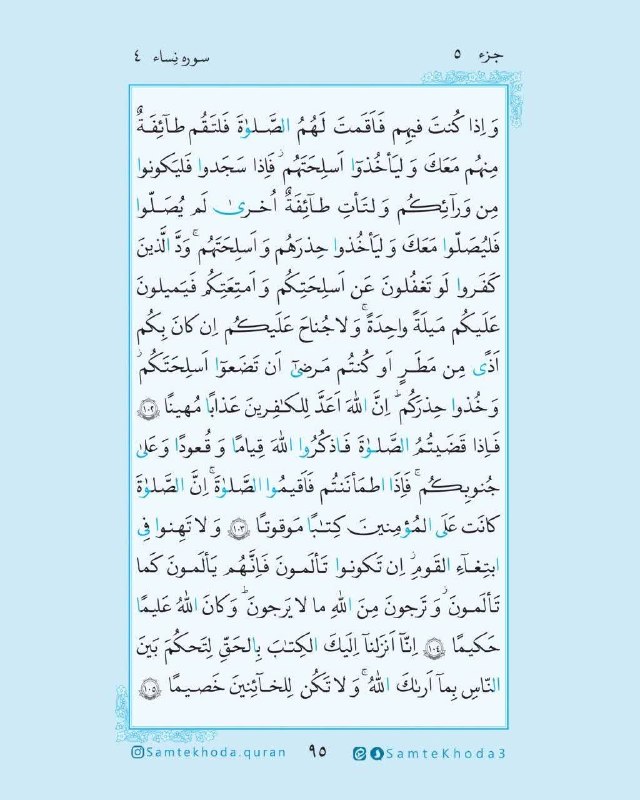 جزء ۵
سوره نِساء ۴
وَ اِذا كُنتَ فيهِم فَاَقَمتَ لَهُمُ الصَّلوٰةَ فَلتَقُم طآئِفَةٌ
مِنهُم مَعَكَ وَ ليَأخُذوٓا اَسلِحَتَهُم ۖ فَاِذا سَجَدوا فَليَكونوا
مِن وَرآئِكُم وَ لتَأتِ طآئِفَةٌ اُخرىٰ لَم يُصَلّوا
فَليُصَلّوا مَعَكَ وَ ليَأخُذوا حِذرَهُم وَ اَسلِحَتَهُم ۚ وَدَّ الَّذينَ
كَفَروا لَو تَغفُلونَ عَن اَسلِحَتِكُم وَ اَمتِعَتِكُم فَيَميلونَ
عَلَيكُم مَيلَةً واحِدَةً ۚ وَ لا جُناحَ عَلَيكُم اِن كانَ بِكُم
اَذًى مِن مَطَرٍ اَو كُنتُم مَرضىٰٓ اَن تَضَعوٓا اَسلِحَتَكُم ۖ
وَ خُذوا حِذرَكُم ۗ اِنَّ اللهَ اَعَدَّ لِلكٰفِرينَ عَذابًا مُهينًا ﴿۱۰۲﴾
فَاِذا قَضَيتُمُ الصَّلوٰةَ فَاذكُرُوا اللهَ قِيامًا وَ قُعودًا وَ عَلىٰ
جُنوبِكُم ۚ فَاِذَا اطمَأنَنتُم فَاَقيمُوا الصَّلوٰةَ ۚ اِنَّ الصَّلوٰةَ
كانَت عَلَى المُؤمِنينَ كِتٰبًا مَوقوتًا ﴿۱۰۳﴾ وَ لا تَهِنوا فِى
ابتِغـآءِ القَومِ ۖ اِن تَكونوا تَألَمونَ فَاِنَّهُم يَألَمونَ كَما
تَألَمونَ ۖ وَ تَرجونَ مِنَ اللهِ ما لا يَرجونَ ۗ وَ كانَ اللهُ عَليمًا
حَكيمًا ﴿۱۰۴﴾ اِنّآ اَنزَلنآ اِلَيكَ الكِتٰبَ بِالحَقِّ لِتَحكُمَ بَينَ
النّاسِ بِمآ اَرىٰكَ اللهُ ۚ وَ لا تَكُن لِلخآئِنينَ خَصيمًا ﴿۱۰۵﴾
Samtekhoda.quran
۹۵
SamteKhoda3